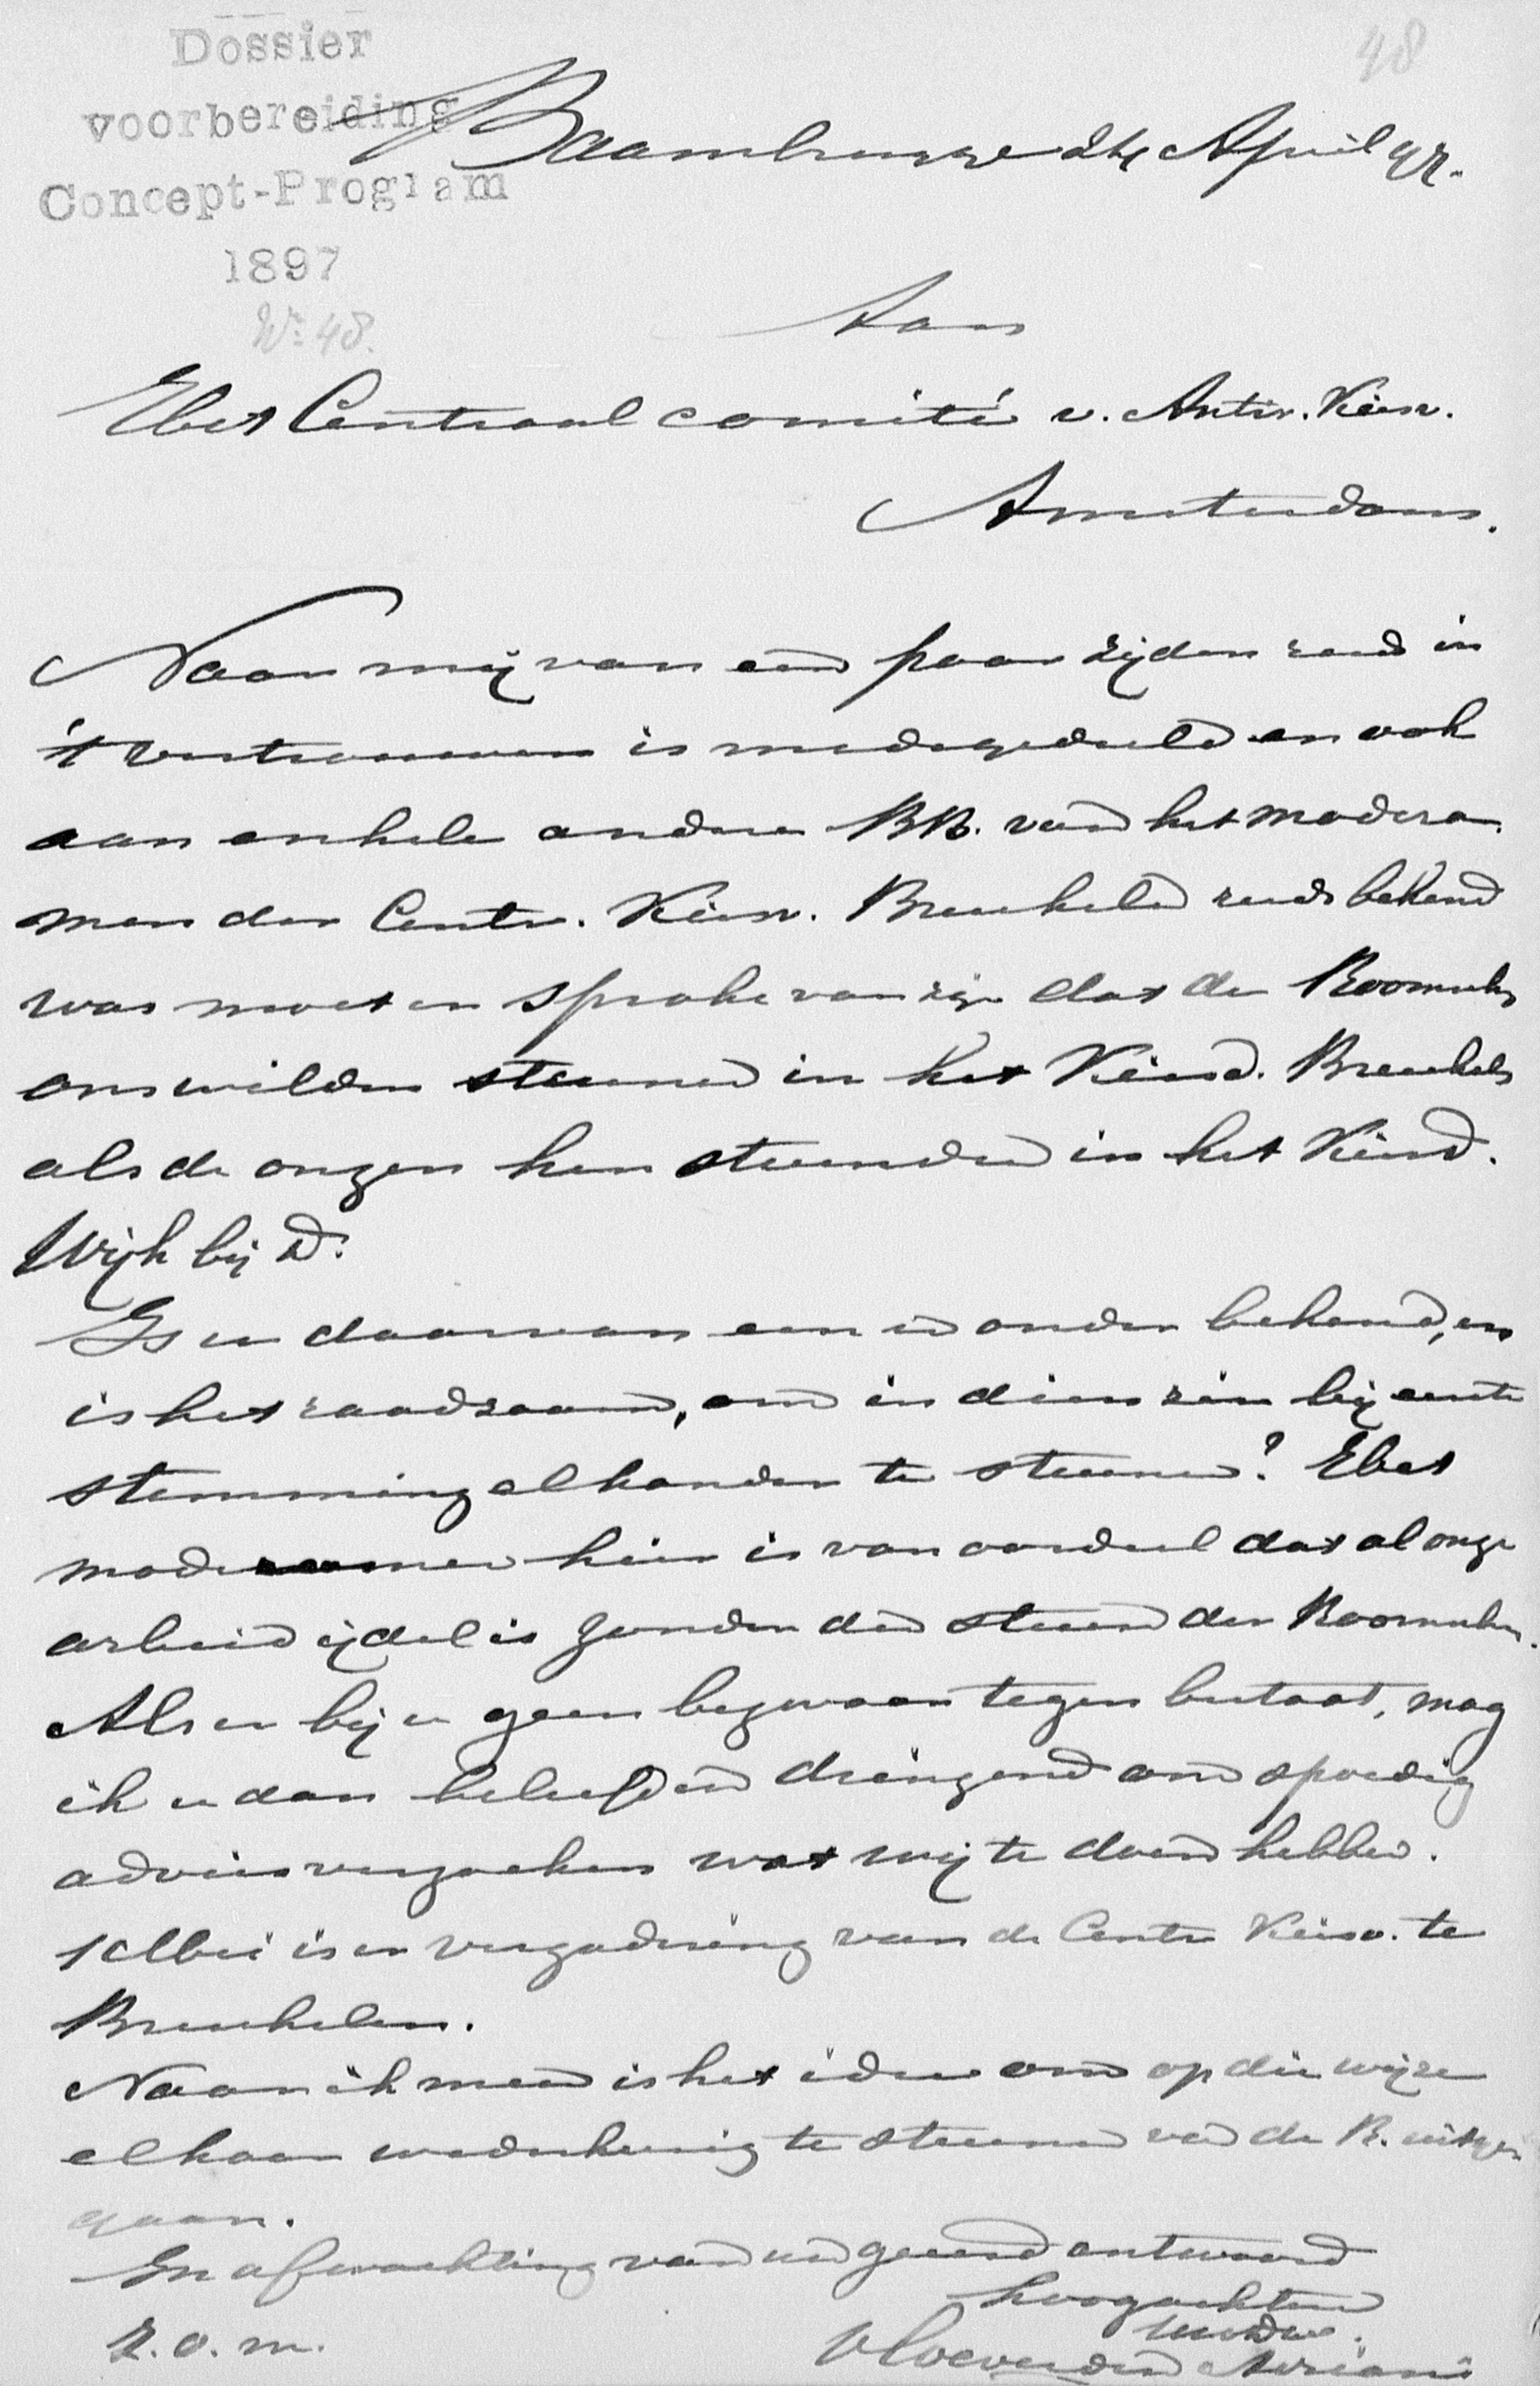 Dossier
voorbereiding
Concept-Program
1897
No. 48.
48
Baambrugge 24 April 97.
Aan
Het Centraal comité v. Antir. Kiesv.
Amsterdam.
Naar mij van een paar zijden reeds in
't vertrouwen is medegedeeld en ook
aan enkele andere BB. van het modera
men der Centr. Kiesv. Breukelen reeds bekend
was moet er sprake van zijn dat de Roomschen
ons wilden steunen in het Kiesd. Breukelen
als de onzen hen steunden in het Kiesd.
Wijk bij D.
Is u daarvan een en ander bekend, en
is het raadzaam, om in dien zin bij eerste
stemming elkander te steunen? Het
moderamen hier is van oordeel dat al onze
arbeid ijdel is zonder den steun der Roomschen.
Als er bij u geen bezwaar tegen bestaat, mag
ik u dan beleefd en dringend om spoedig
advies verzoeken wat wij te doen hebben.
1 Mei is er vergadering van de Centr Kiesv. te
Breukelen.
Naar ik meen is het idee om op die wijze
elkaar wederkeerig te steunen van de R. uitge-
gaan.
In afwachting van uw geëerd antwoord
hoogachtend
Uwdw.
z.o.m.
v Coeverden Adriani